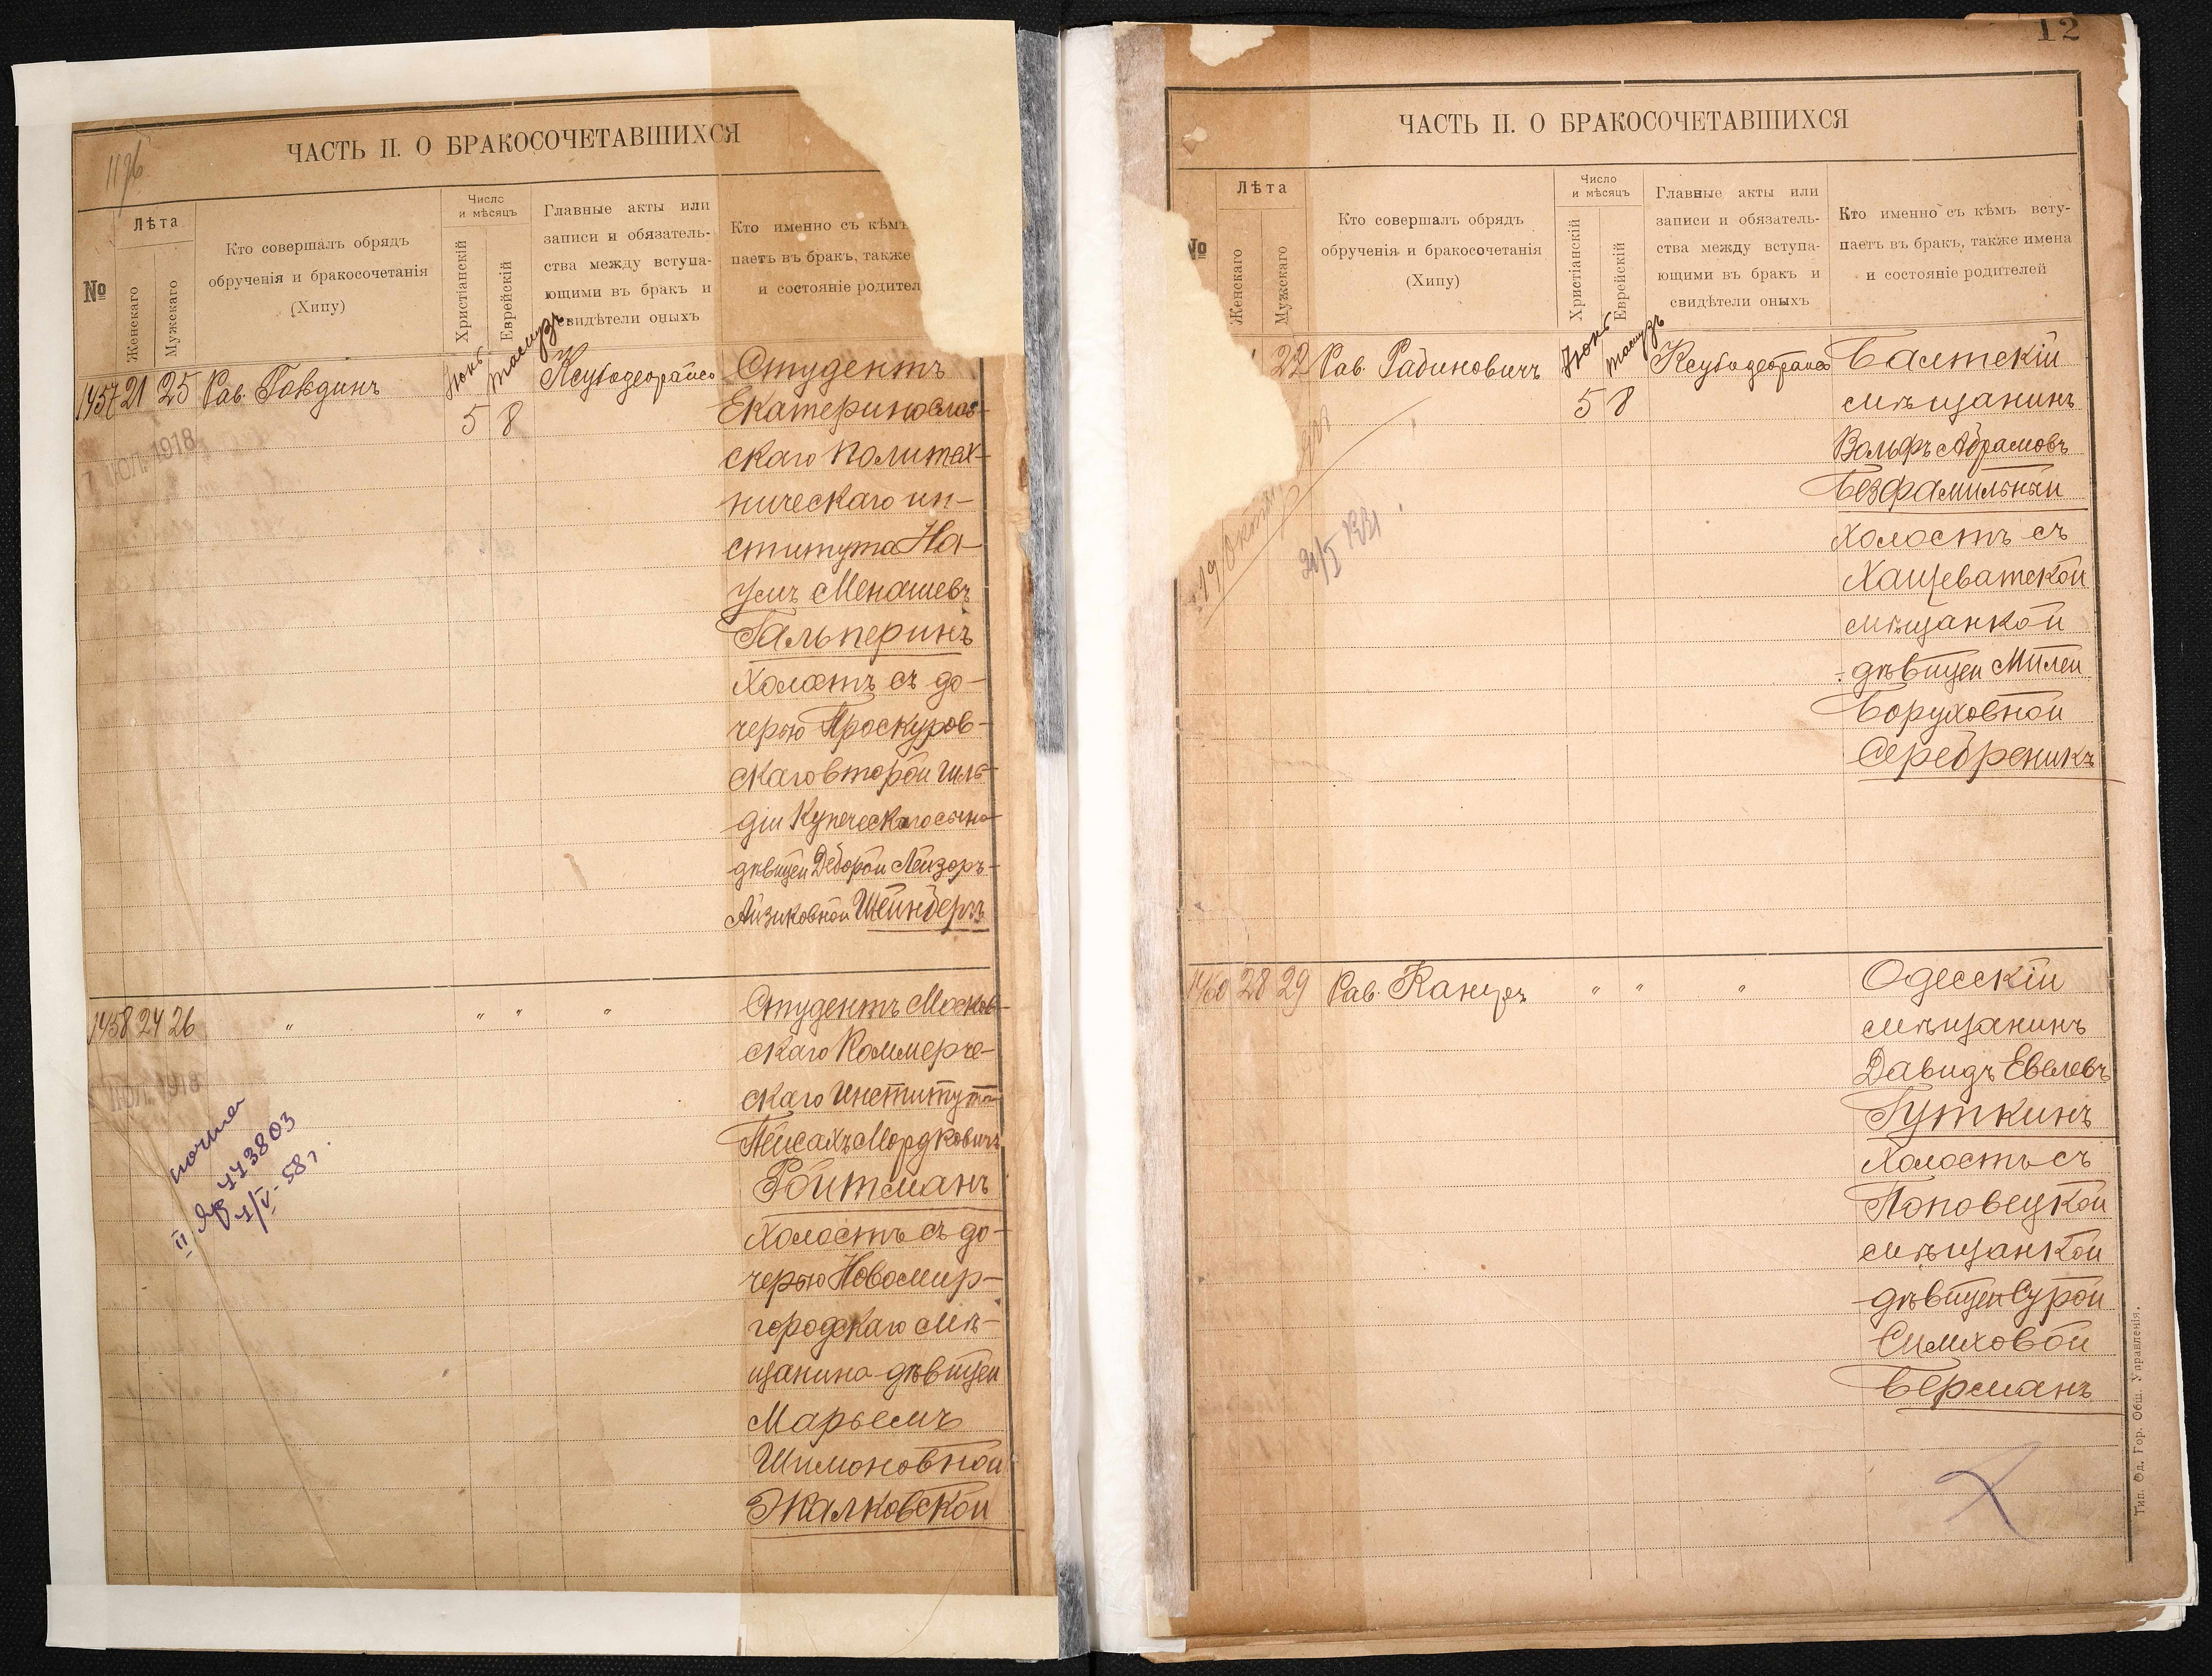 1176
ЧАСТЬ II. О БРАКОСОЧЕТАВШИХСЯ
№
Лѣта
Женскаго
Мужскаго
Кто совершалъ обрядъ
обрученія и бракосочетанія
(Хипу)
Число
и мѣсяцъ
Христіанскій
Еврейскій
Главные акты или
записи и обязатель-
ства между вступа-
ющими въ бракъ и
свидѣтели оныхъ
Кто именно съ кѣмъ
паетъ въ бракъ, также
и состояніе родител
1457 21 25 Рав. Говдинъ
Іюнь 5
тамузъ 8
Ксубодеорайсо
Студентъ
Екатеринослав-
скаго Политех-
ническаго ин-
ститута На-
умъ Менашевъ
Гальперинъ
холостъ съ до-
черью Проскуров-
скаго второй гиль-
діи купеческаго сына
дѣвицей Деборой Лейзоръ-
Айзиковной Штейнбергъ
7 ІЮЛ. 1918
1458 24 26 " " " "
Студентъ Москов-
скаго Коммерче-
скаго Института
Пейсахъ Мордковичъ
Ройтманъ
холостъ съ до-
черью Новомир-
городскаго мѣ-
щанина дѣвицей
Марьемъ
Шимоновной
Жалковской
ІЮЛ. 1918
II
1/V-58 г.
12
ЧАСТЬ II. О БРАКОСОЧЕТАВШИХСЯ
№
Лѣта
Женскаго
Мужскаго
Кто совершалъ обрядъ
обрученія и бракосочетанія
(Хипу)
Число
и мѣсяцъ
Христіанскій
Еврейскій
Главные акты или
записи и обязатель-
ства между вступа-
ющими въ бракъ и
свидѣтели оныхъ
Кто именно съ кѣмъ всту-
паетъ въ бракъ, также имена
и состояніе родителей
22 Рав. Рабиновичъ
Іюнь 5
тамузъ 8
Ксубодеорайсо
Балтскій
мѣщанинъ
Вольфъ Абрамовъ
Безфамильный
холостъ съ
Хащеватской
мѣщанкой
дѣвицей Милей
Боруховной
Серебреникъ
1460 28 29 Рав. Канцеръ " " "
Одесскій
мѣщанинъ
Давидъ Евелевъ
Гуткинъ
холостъ съ
Поповецкой
мѣщанкой
дѣвицей Сурой
Симховой
Берманъ
Тип. Од. Гор. Общ. Управленія.